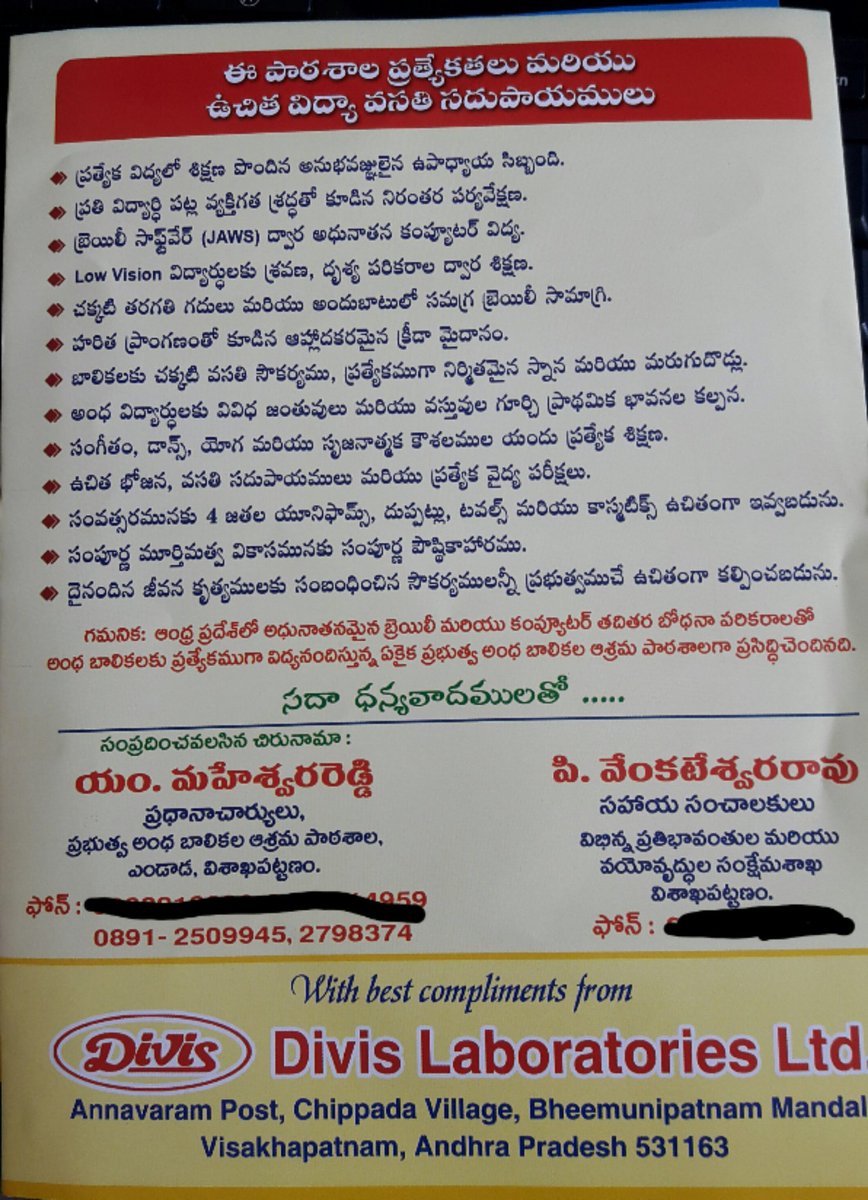 ఈ పాఠశాల ప్రత్యేకతలు మరియు
ఉచిత విద్యా వసతి సదుపాయములు
ప్రత్యేక విద్యలో శిక్షణ పొందిన అనుభవజ్ఞులైన ఉపాధ్యాయ సిబ్బంది.
ప్రతి విద్యార్ధి పట్ల వ్యక్తిగత శ్రద్ధతో కూడిన నిరంతర పర్యవేక్షణ.
బ్రెయిలీ సాఫ్ట్‌వేర్ (JAWS) ద్వార అధునాతన కంప్యూటర్ విద్య.
Low Vision విద్యార్ధులకు శ్రవణ, దృశ్య పరికరాల ద్వార శిక్షణ.
చక్కటి తరగతి గదులు మరియు అందుబాటులో సమగ్ర బ్రెయిలీ సామాగ్రి.
హరిత ప్రాంగణంతో కూడిన ఆహ్లాదకరమైన క్రీడా మైదానం.
బాలికలకు చక్కటి వసతి సౌకర్యము, ప్రత్యేకముగా నిర్మితమైన స్నాన మరియు మరుగుదొడ్లు.
అంధ విద్యార్ధులకు వివిధ జంతువులు మరియు వస్తువుల గూర్చి ప్రాథమిక భావనల కల్పన.
సంగీతం, డాన్స్, యోగ మరియు సృజనాత్మక కౌశలముల యందు ప్రత్యేక శిక్షణ.
ఉచిత భోజన, వసతి సదుపాయములు మరియు ప్రత్యేక వైద్య పరీక్షలు.
సంవత్సరమునకు 4 జతల యూనిఫామ్స్, దుప్పట్లు, టవల్స్ మరియు కాస్మటిక్స్ ఉచితంగా ఇవ్వబడును.
సంపూర్ణ మూర్తిమత్వ వికాసమునకు సంపూర్ణ పౌష్ఠికాహారము.
దైనందిన జీవన కృత్యములకు సంబంధించిన సౌకర్యములన్నీ ప్రభుత్వముచే ఉచితంగా కల్పించబడును.
గమనిక: ఆంధ్ర ప్రదేశ్‌లో అధునాతనమైన బ్రెయిలీ మరియు కంప్యూటర్ తదితర బోధనా పరికరాలతో
అంధ బాలికలకు ప్రత్యేకముగా విద్యనందిస్తున్న ఏకైక ప్రభుత్వ అంధ బాలికల ఆశ్రమ పాఠశాలగా ప్రసిద్ధిచెందినది.
సదా ధన్యవాదములతో .....
సంప్రదించవలసిన చిరునామా :
యం. మహేశ్వరరెడ్డి
ప్రధానాచార్యులు,
ప్రభుత్వ అంధ బాలికల ఆశ్రమ పాఠశాల,
ఎండాడ, విశాఖపట్టణం.
ఫోన్ : 4959
0891- 2509945, 2798374
పి. వేంకటేశ్వరరావు
సహాయ సంచాలకులు
విభిన్న ప్రతిభావంతుల మరియు
వయోవృద్ధుల సంక్షేమశాఖ
విశాఖపట్టణం.
ఫోన్ :
With best compliments from
Divis Divis Laboratories Ltd.
Annavaram Post, Chippada Village, Bheemunipatnam Mandal
Visakhapatnam, Andhra Pradesh 531163